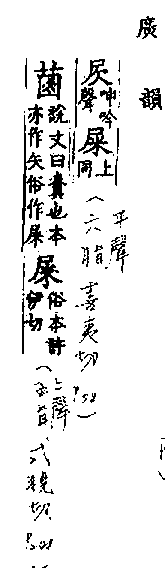 廣韻
呻吟聲 屎 上同
平聲
(六脂 喜夷切 p58)
菌 說文曰糞也本亦作矢俗作屎 屎 俗本許伊切
上聲
(五旨 式視切